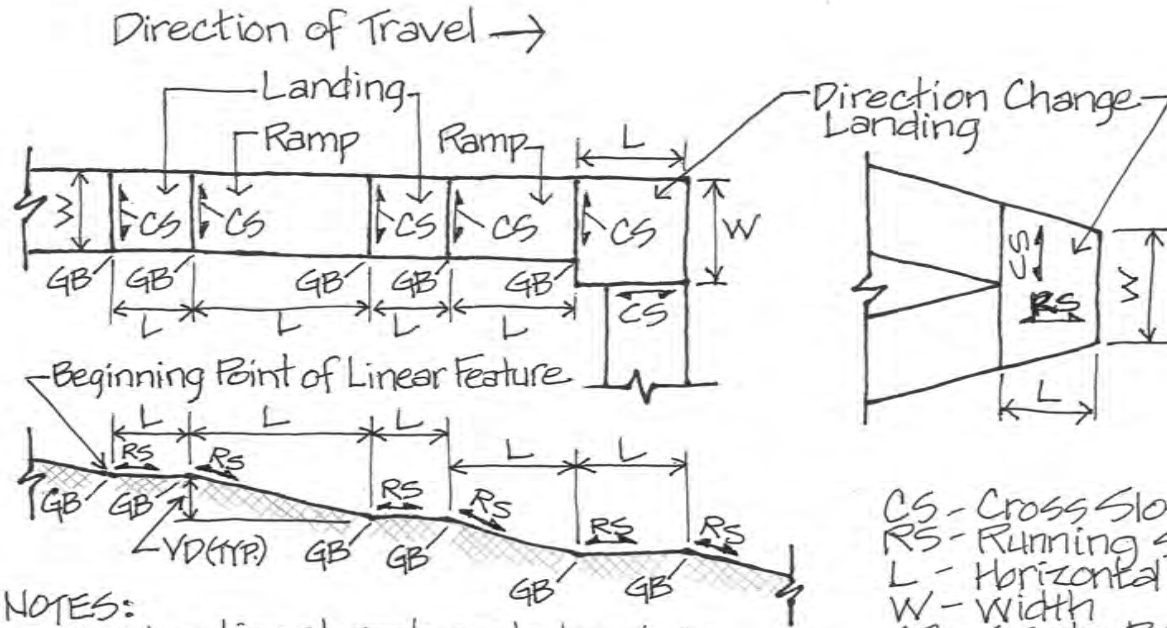 Direction of Travel →
Landing
Ramp
Ramp
L
Direction Change
Landing
W
CS
CS
CS
CS
CS
W
CS
RS
W
GB
GB
GB
GB
GB
L
L
L
L
CS
L
Beginning Point of Linear Feature
L
L
L
RS
RS
L
L
RS
RS
RS
RS
GB
GB
VD(TYP.)
GB
GB
GB
GB
CS - Cross Slo
RS - Running
L - Horizontal
W - Width
NOTES: